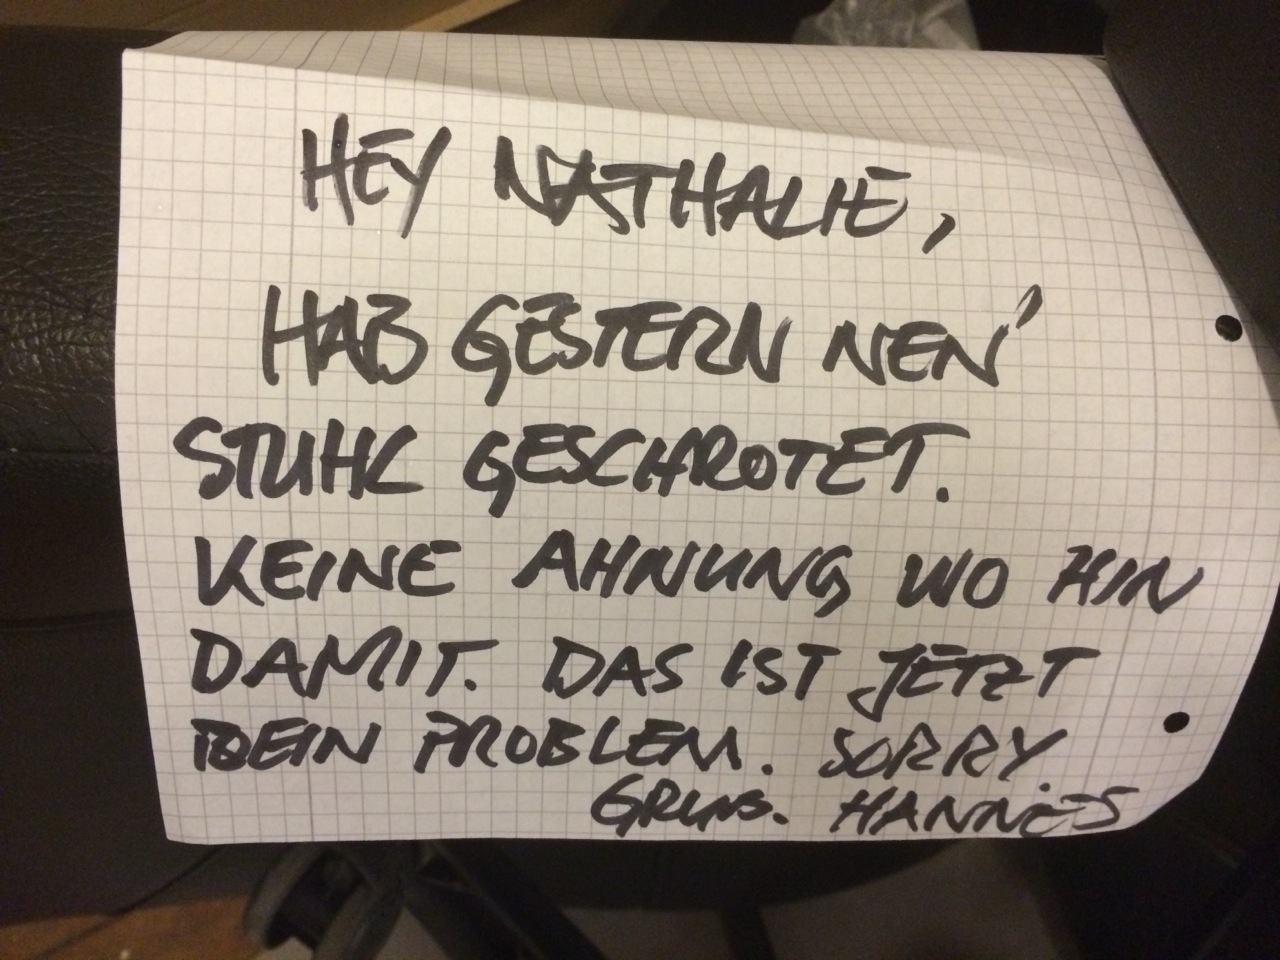 HEY NATHALIE,
HAB GESTERN NEN'
STUHL GESCHROTET.
KEINE AHNUNG WO HIN
DAMIT. DAS IST JETZT
DEIN PROBLEM. SORRY.
GRUß. HANNES